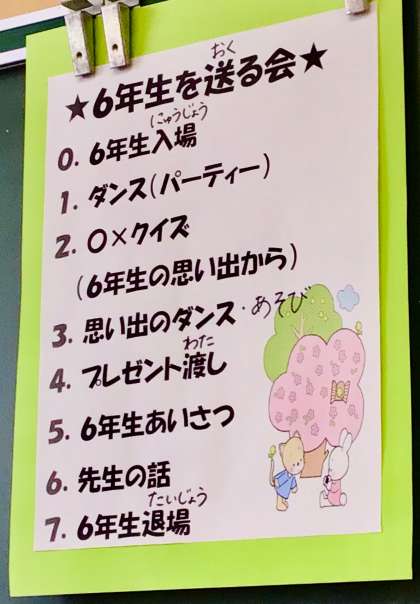 ★6年生を送る会★
おく
0. 6年生入場
にゅうじょう
1. ダンス(パーティー)
2. ○×クイズ
(6年生の思い出から)
3. 思い出のダンス・あそび
4. プレゼント渡し
わた
5. 6年生あいさつ
6. 先生の話
7. 6年生退場
たいじょう